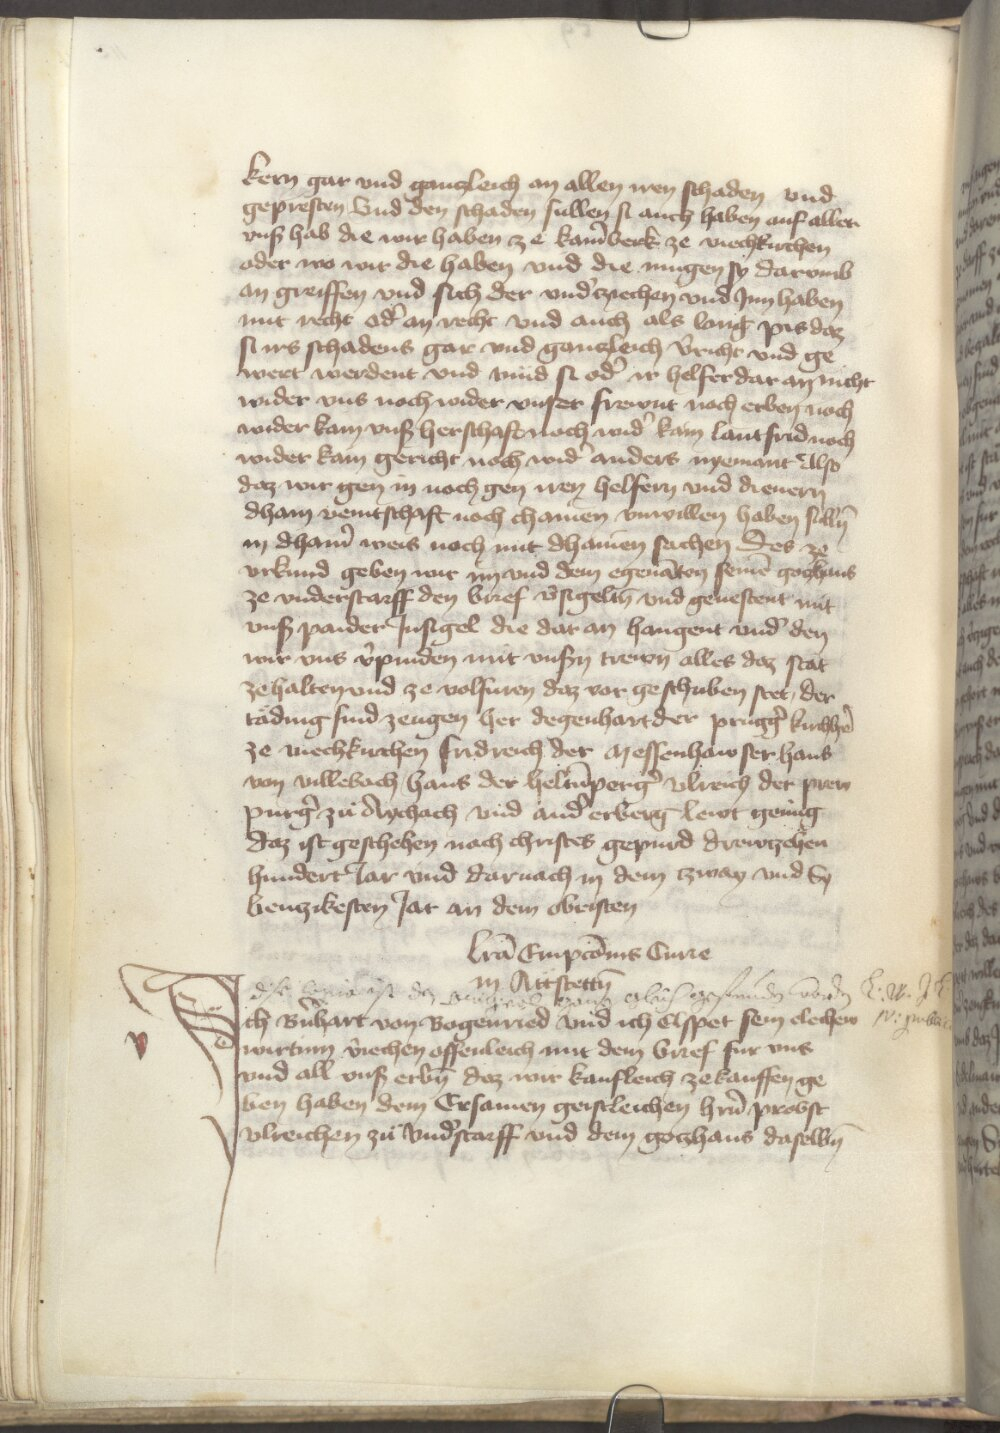 kern gar vnd gantzleich an allen iren schaden vnd
gepresten Vnd den schaden sullen si auch haben auf aller
vnß hab die wir haben ze kam̄berk ze viechkirchen
oder wo wir die haben vnd die mugen sy darumb
an greiffen vnd sich der vnd̾ziechen vnd Inn haben
mit recht od̾ an recht vnd auch als lang pis daz
si irs schadens gar vnd gantzleich v̾richt vnd ge
wert werdent vnd sind si od̾ ir helfer dar an nicht
wider vns noch wider vnser frewnt noch erben noch
wider kain vnß herschaft noch wid̾ kain lantfrid noch
wider kain gericht noch wid̾ anders nyemant Also
daz wir gen in noch gen iren helfern vnd dienern
dhain veintschaft noch chainen vnwillen haben sulln̄
in dhain̾ weis noch mit dhainen sachen Des ze
vrkund geben wir im vnd dem egenāten seinē gotzhaus
ze vnderstarff den brief v̾sigeltn̄ vnd geuestent mit
vnß paider Insigel die dar an hangent vnd̾ den
wir vns v̾pinden mit vnßn trewn alles daz stat
ze halten vnd ze volfuren daz vor geschriben stet, der
täding sind zeugen her degenhart der prugg̾ kirchh̾r̄
ze viechkirchen fridreich der Messenhawser hans
von villebach hans der heltn̄perg̾ vlreich der prew
purg̾ zu Aychach vnd and̾ erberg lewt genug
daz ist geschehen nach christes gepurd drewtzehen
hundert Jar vnd darnach in dem tzway vnd Sy
bentzikesten Jar an dem obristen
Lr̄a Empc̄onis Curie
in Attstettn̄
Ich Burhart von Bogenried vnd ich Elspet sein elichew
wirtinn v̾iechen offenleich mit dem brief fur vns
vnd all vnß erbn̄ daz wir kaufleich ze kauffen ge
ben haben dem Ersamen geistleichen hrn̄ probst
vlreichen zu Vnd̾starff vnd dem gotzhaus daselbn̄